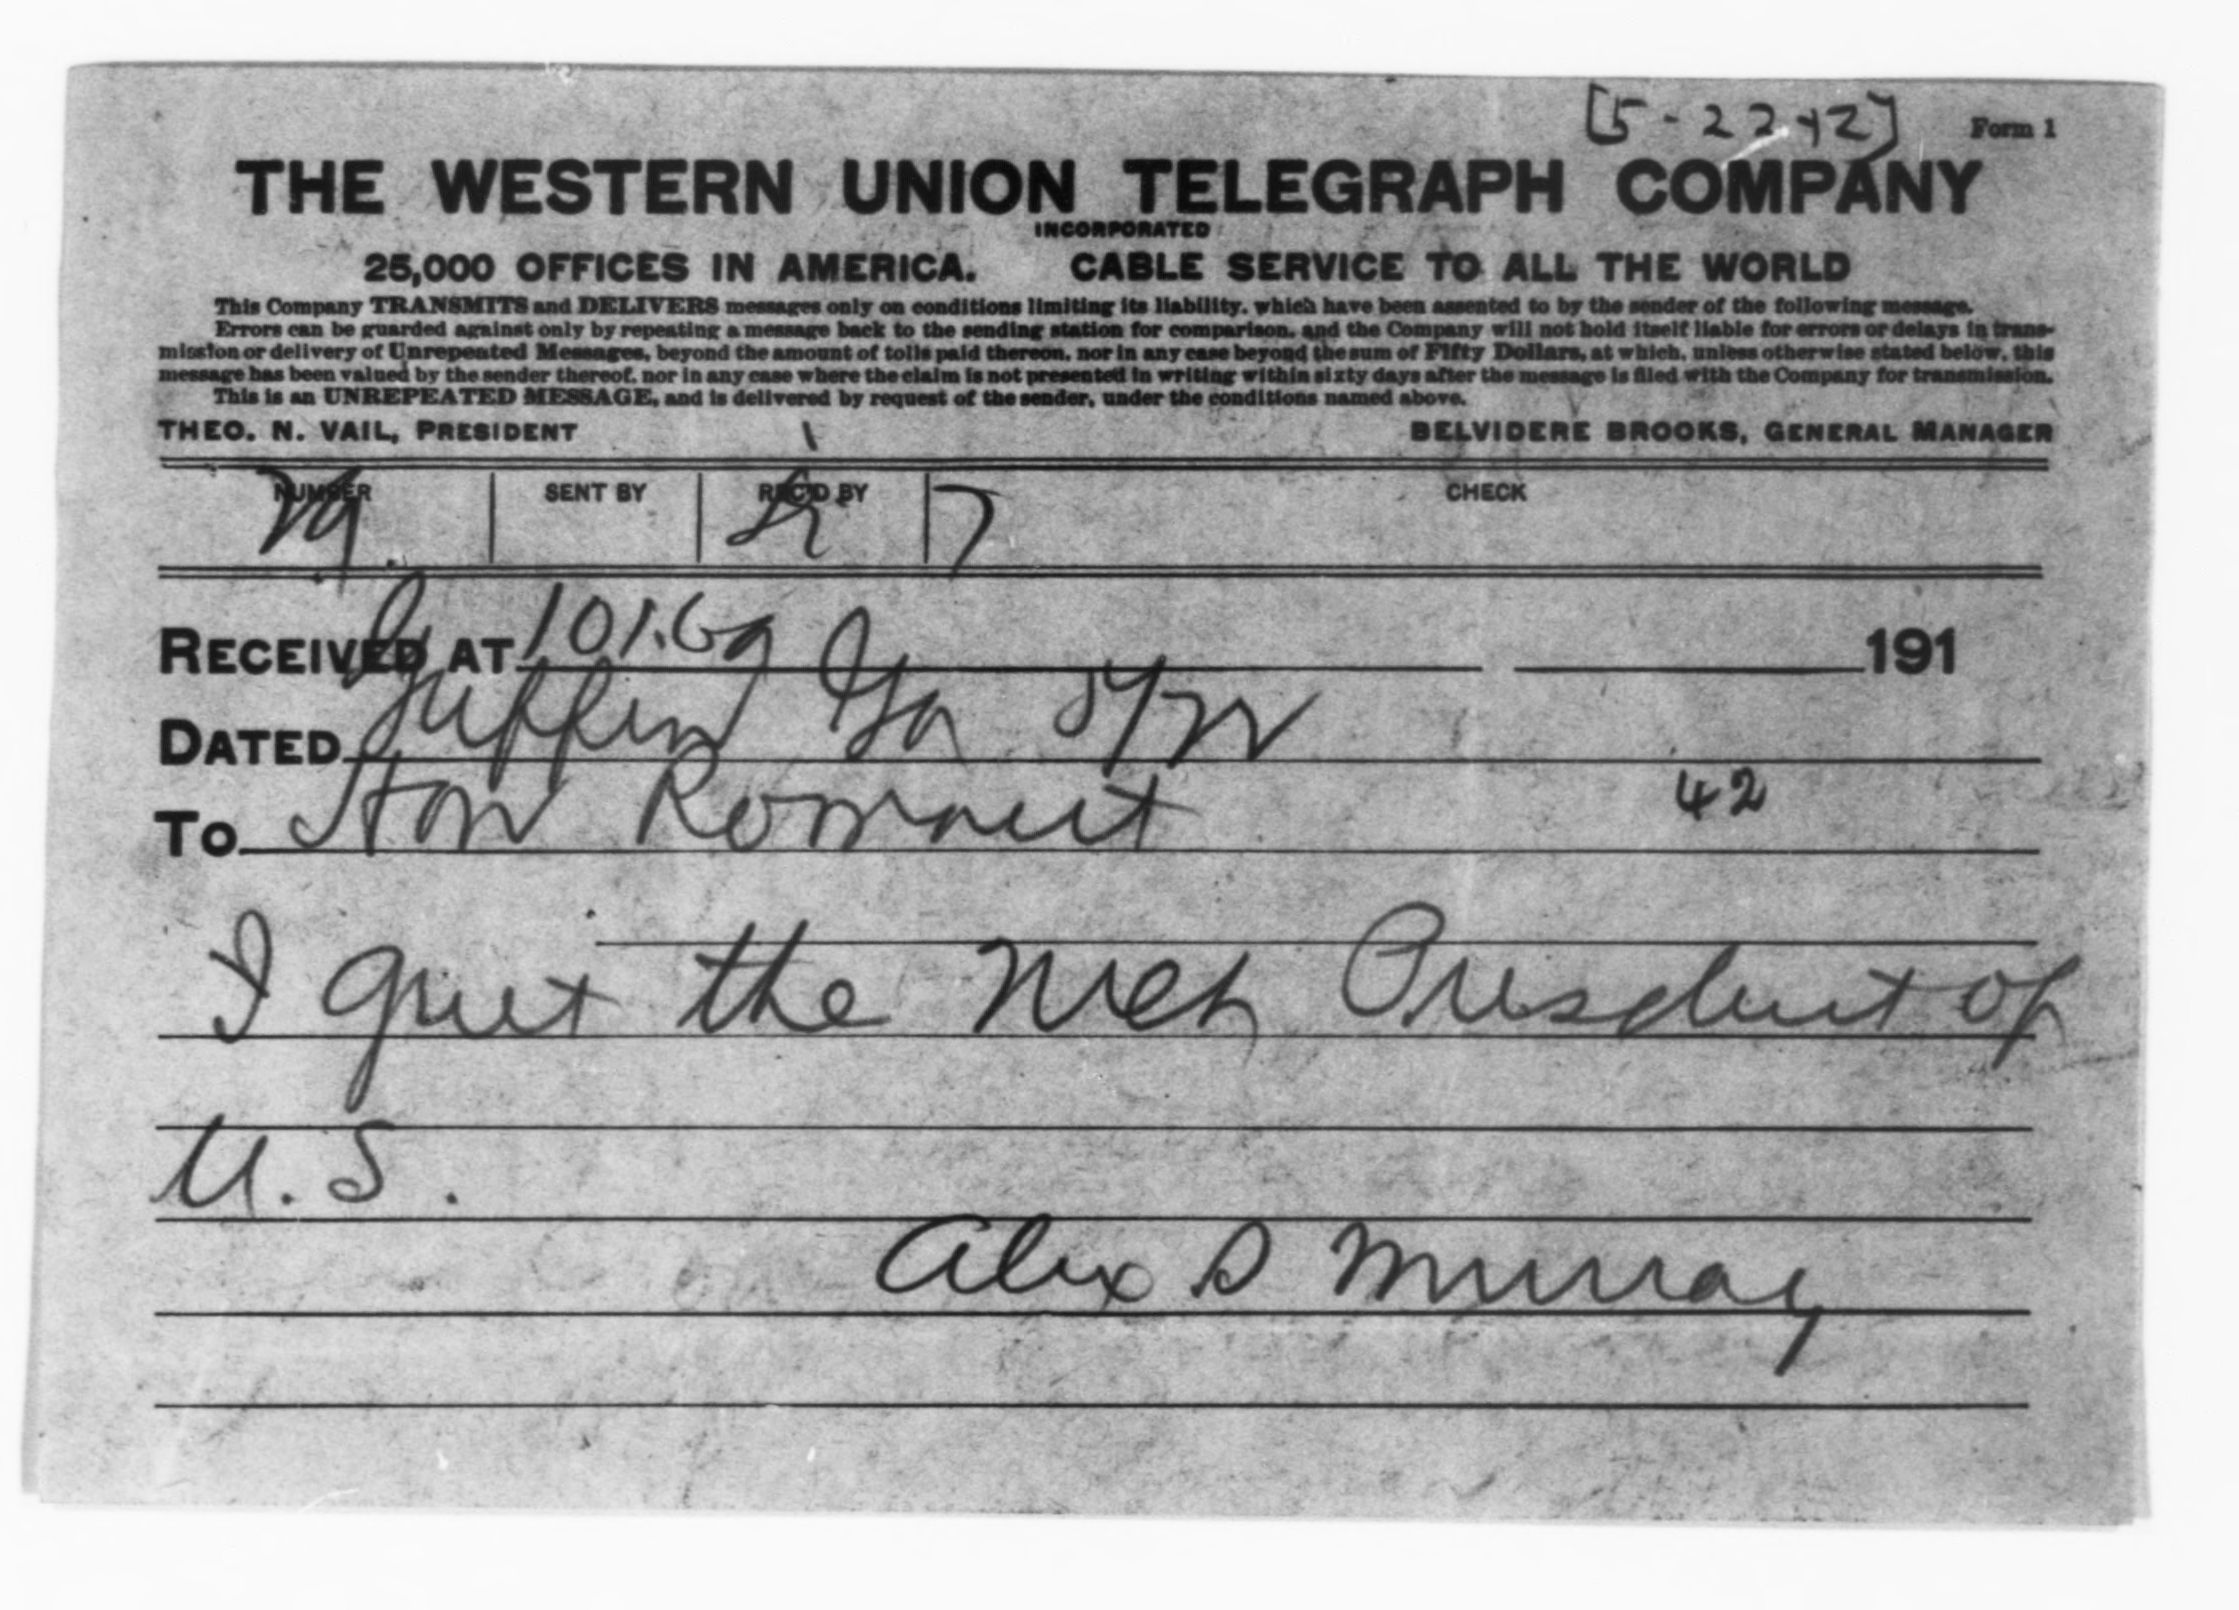 [5-22-12] Form 1
THE WESTERN UNION TELEGRAPH COMPANY
INCORPORATED
25,000 OFFICES IN AMERICA. CABLE SERVICE TO ALL THE WORLD
This Company TRANSMITS and DELIVERS messages only on conditions limiting its liability, which have been assented to by the sender of the following message.
Errors can be guarded against only by repeating a message back to the sending station for comparison, and the Company will not hold itself liable for errors or delays in trans-
mission or delivery of Unrepeated Messages, beyond the amount of tolls paid thereon, nor in any case beyond the sum of Fifty Dollars, at which, unless otherwise stated below, this
message has been valued by the sender thereof, nor in any case where the claim is not presented in writing within sixty days after the message is filed with the Company for transmission.
This is an UNREPEATED MESSAGE, and is delivered by request of the sender, under the conditions named above.
THEO. N. VAIL, PRESIDENT BELVIDERE BROOKS, GENERAL MANAGER
NUMBER SENT BY REC'D BY CHECK
RECEIVED AT 191
DATED Ga
To Hon 42
I greet the next President of
U.S.
Alex D Murray